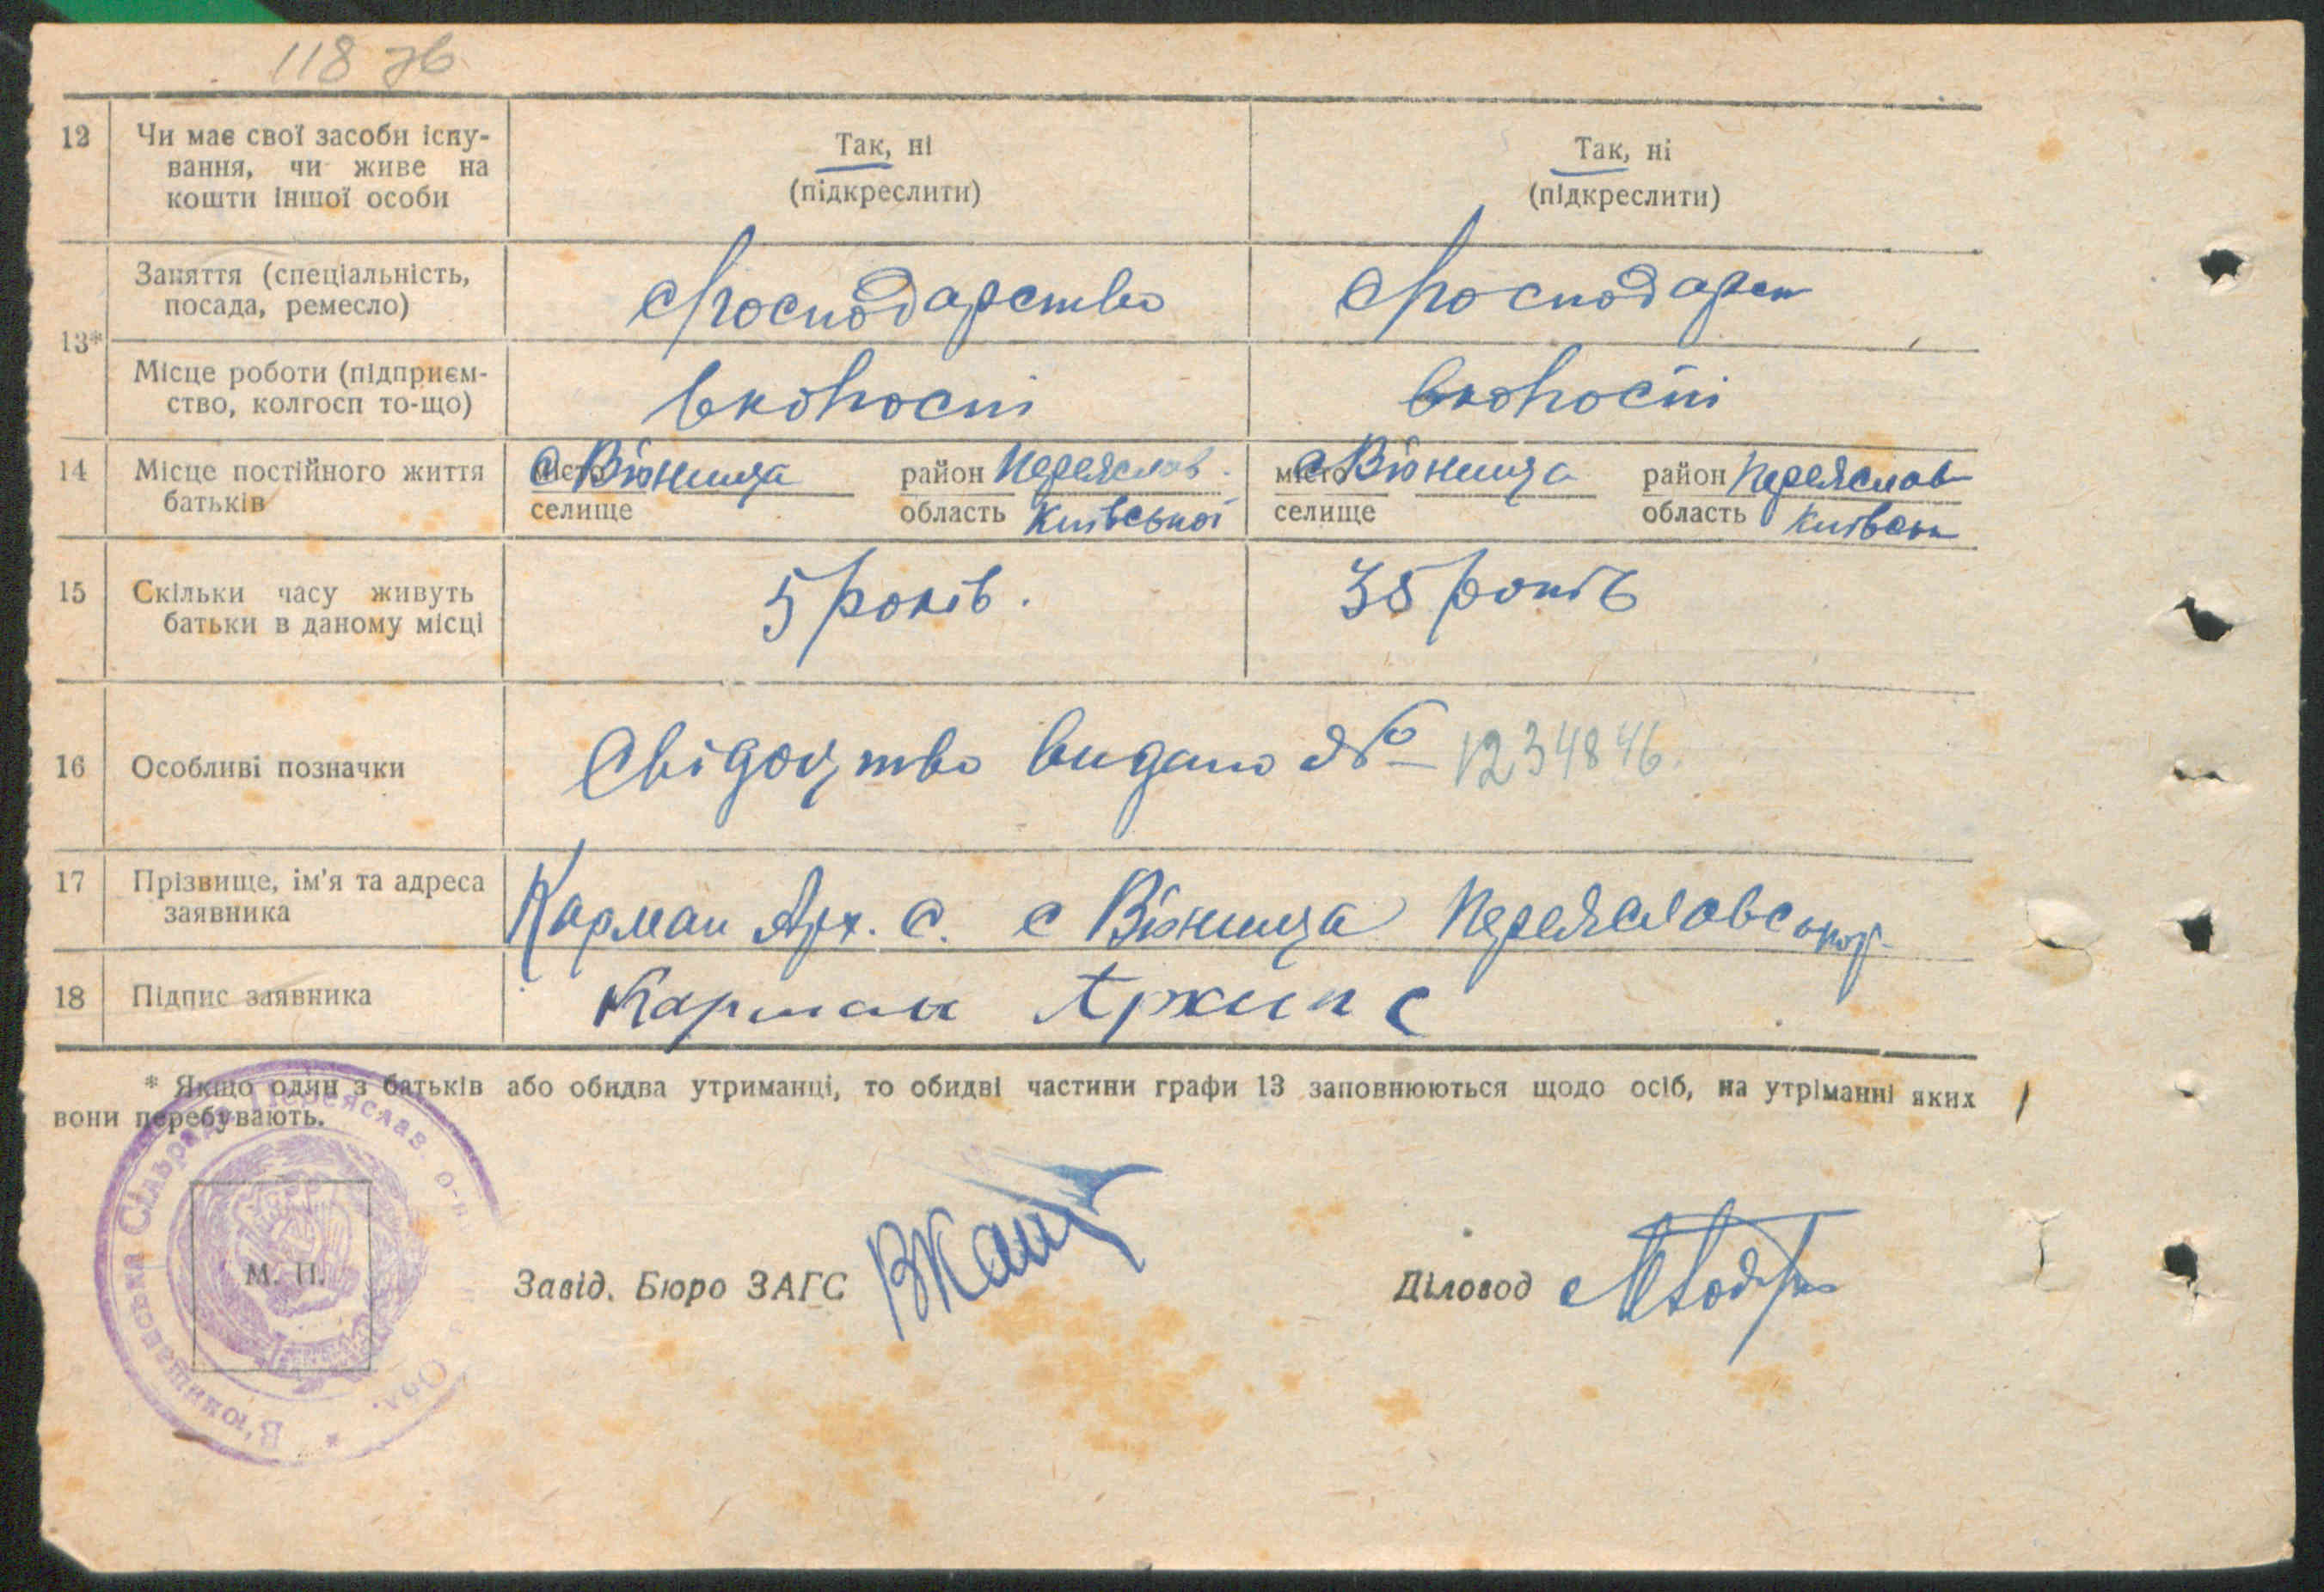 118 зв
12 Чи має свої засоби існу- Так, ні Так, ні
вання, чи живе на (підкреслити) (підкреслити)
кошти іншої особи
13* Заняття (спеціальність, Господарство Господарст
посада, ремесло)
Місце роботи (підприєм- вкогоспі вкогоспі
ство, колгосп то-що)
14 Місце постійного життя місто с Вюнища район Переяслав. місто с Вюнища район Переяслав
батьків селище область Київської селище область Київськ
15 Скільки часу живуть 5 років. 38 років
батьки в даному місці
16 Особливі позначки Свідоцтво видано № 1234846
17 Прізвище, ім'я та адреса Карман Арх. С. с Вюнища Переяславськ
заявника
18 Підпис заявника Карман Архип С
* Якщо один з батьків або обидва утриманці, то обидві частини графи 13 заповнюються щодо осіб, на утріманні яких
вони перебувають.
В'юнищавська Сільрада Переяслав. р-ну Обл.
М. П.
Завід. Бюро ЗАГС
Діловод